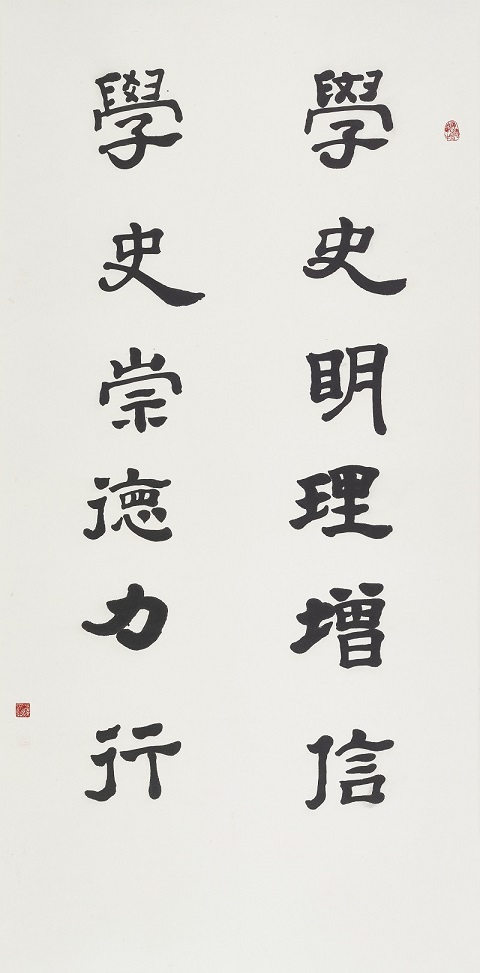 學史明理增信
學史崇德力行